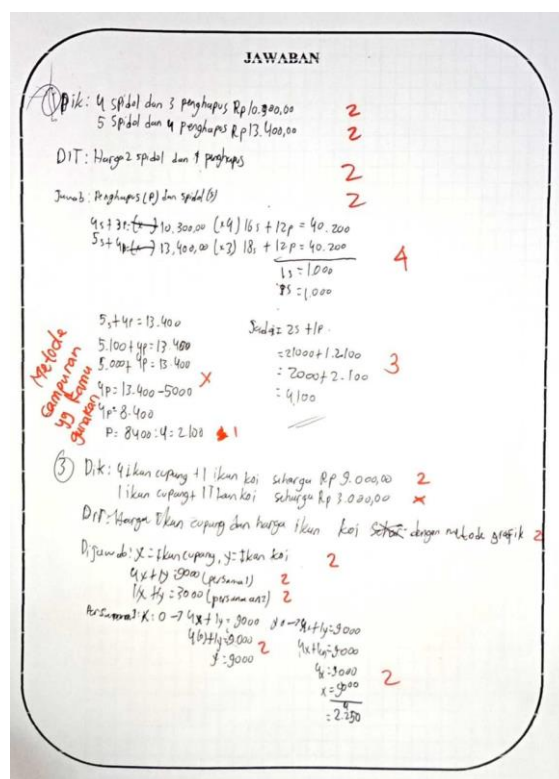 JAWABAN
① Dik: 4 spidol dan 3 penghapus Rp10.300,00 2
5 spidol dan 4 penghapus Rp13.400,00 2
DIT: Harga 2 spidol dan 1 penghapus 2
Jawab: Penghapus (P) dan spidol (s) 2
4s + 3p: 10,300,00 (x4) 16s + 12p = 40.200
5s + 4p: 13,400,00 (x3) 18s + 12p = 40.200
1s = 1.000 4
s = 1.000
5s + 4p = 13.400
5.100 + 4p = 13.400
5.000 + 4p = 13.400
4p = 13.400 - 5000 X
4p = 8.400
P = 8400 : 4 = 2100 1
Metode
campuran
yg kamu
gunakan
Jadi: 2s + 1p.
= 2.1000 + 1.2100
= 2000 + 2.100 3
= 4100
③ Dik: 4 ikan cupang + 1 ikan koi seharga Rp 9.000,00 2
1 ikan cupang + 1 ikan koi seharga Rp 3.000,00 x
DIT: Harga ikan cupang dan harga ikan koi dengan metode grafik 2
Dijawab: x = ikan cupang, y = ikan koi 2
4x + 1y = 9000 (persamaan 1) 2
1x + 1y = 3000 (persamaan 2) 2
Persamaan 1: x: 0 → 4x + 1y = 9000
4(0) + 1y = 9000 2
y = 9000
y: 0 → 4x + 1y = 9000
4x + 1(0) = 9000
4x = 9000
x = 9000
4
= 2.250 2